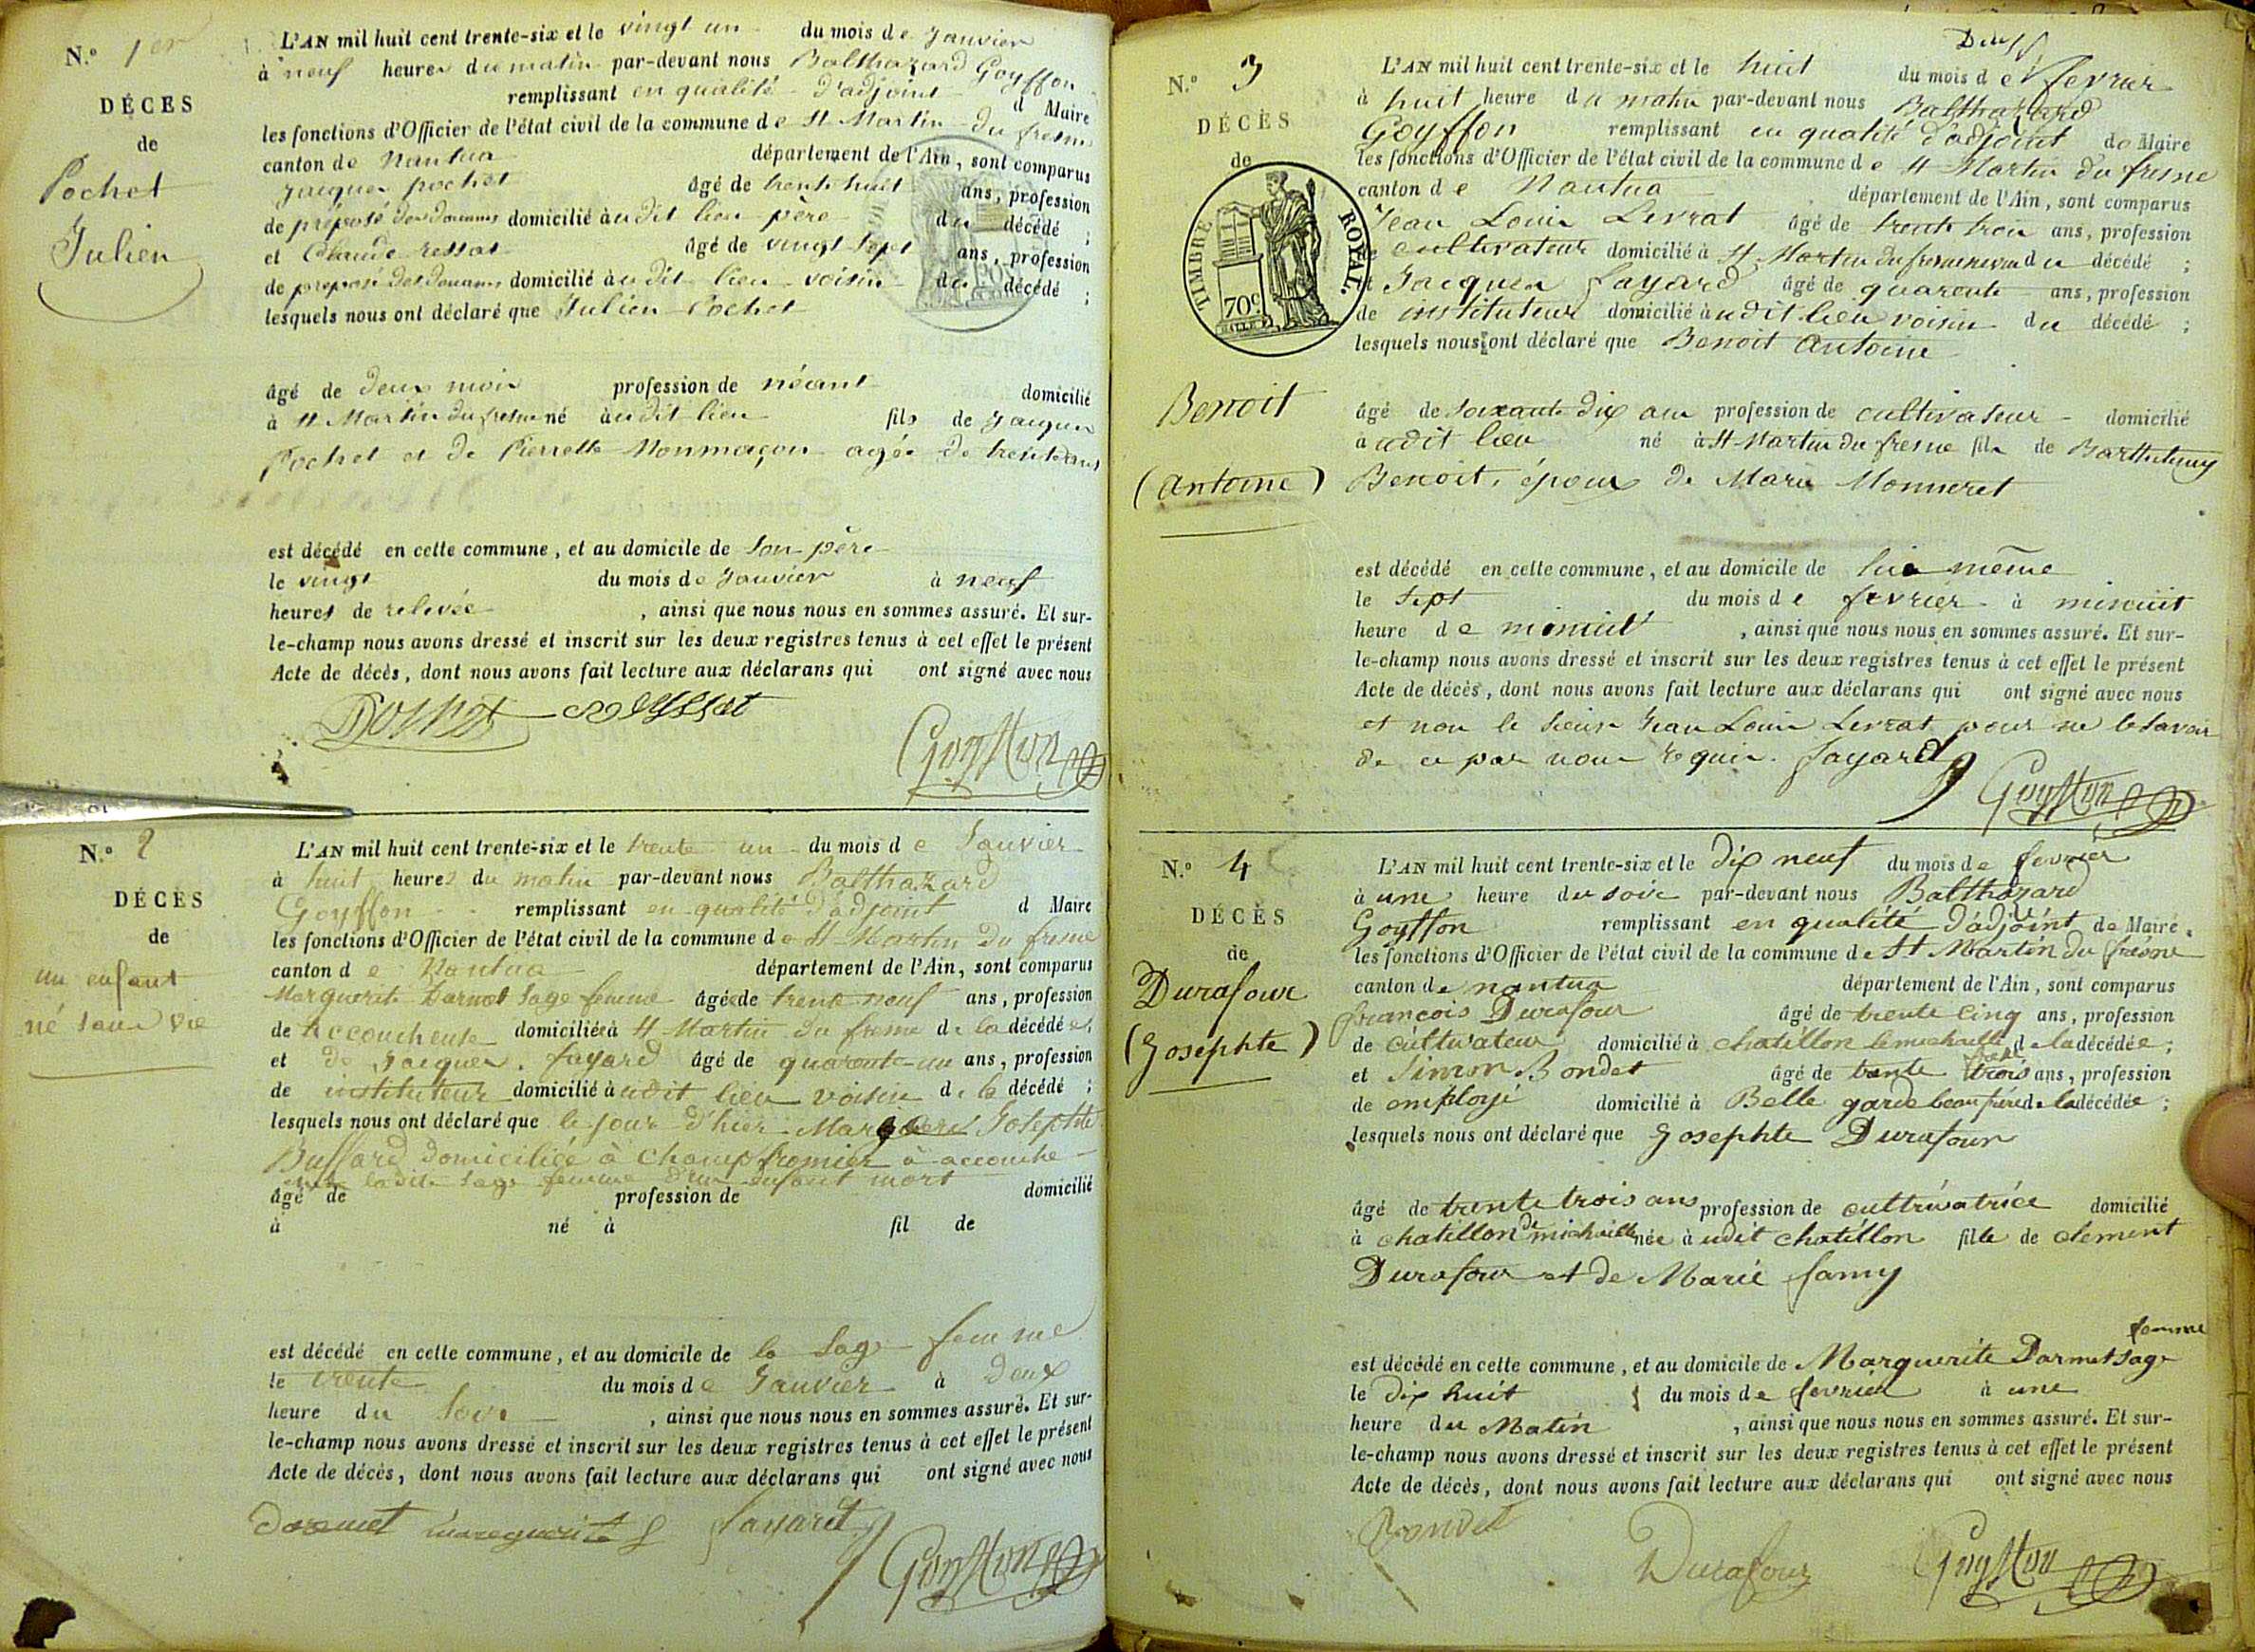 N.º 1er
DÉCÈS
de
Pochet
Julien
L'AN mil huit cent trente-six et le vingt un du mois de Janvier
à neuf heures du matin par-devant nous Balthazard Goyffon
remplissant en qualité d'adjoint d Maire
les fonctions d'Officier de l'état civil de la commune de St Martin du fresne
canton de Nantua département de l'Ain, sont comparus
Jacques pochet âgé de trente huit ans, profession
de préposé des douanes domicilié àudit lieu père du décédé ;
et Claude ressat âgé de vingt sept ans, profession
de préposé des douanes domicilié àudit lieu voisin du décédé ;
lesquels nous ont déclaré que Julien Pochet
âgé de deux mois profession de néant domicilié
à St Martin du fresne né àudit lieu fils de Jacques
Pochet et de Pierrette Monmaçon agée de trente ans
est décédé en cette commune, et au domicile de son père
le vingt du mois de Janvier à neuf
heures de relevée , ainsi que nous nous en sommes assuré. Et sur-
le-champ nous avons dressé et inscrit sur les deux registres tenus à cet effet le présent
Acte de décès, dont nous avons fait lecture aux déclarans qui ont signé avec nous
Goyffon
N.º 2
DÉCÈS
de
un enfant
né sans vie
L'AN mil huit cent trente-six et le trente un du mois de Janvier
à huit heures du matin par-devant nous Balthazard
Goyffon remplissant en qualité d'adjoint d Maire
les fonctions d'Officier de l'état civil de la commune de St Martin du fresne
canton de Nantua département de l'Ain, sont comparus
Marguerite Darmet Sage femme âgée de trente neuf ans, profession
de accoucheuse domiciliée à St Martin du fresne de la décédée,
et de Jacques fayard âgé de quarante-un ans, profession
de instituteur domicilié àudit lieu voisin de la décédé ;
lesquels nous ont déclaré que le jour d'hier Josephte
Buffard domiciliée à Champfromier à accouché
ladite sage femme d'un enfant mort
âgé de profession de domicilié
à né à fil de
est décédé en cette commune, et au domicile de la Sage femme
le trente du mois de Janvier à deux
heure du Soir , ainsi que nous nous en sommes assuré. Et sur-
le-champ nous avons dressé et inscrit sur les deux registres tenus à cet effet le présent
Acte de décès, dont nous avons fait lecture aux déclarans qui ont signé avec nous
Darmet marguerite fayard
Goyffon
N.º 3
DÉCÈS
de
TIMBRE ROYAL.
70c
Benoit
(Antoine)
L'AN mil huit cent trente-six et le huit du mois de fevrier
à huit heure du matin par-devant nous Balthazard
Goyffon remplissant en qualité d'adjoint de Maire
les fonctions d'Officier de l'état civil de la commune de St Martin du fresne
canton de Nantua département de l'Ain, sont comparus
Jean Louis Levrat âgé de trente trois ans, profession
de cultivateur domicilié à St Martin du fresne neveu du décédé ;
et Jacques fayard âgé de quarante ans, profession
de instituteur domicilié àudit lieu voisin du décédé ;
lesquels nous ont déclaré que Benoit Antoine
âgé de soixante dix ans profession de cultivateur domicilié
àudit lieu né à St Martin du fresne fils de Barthelemy
Benoit, époux de Marie Monneret
est décédé en cette commune, et au domicile de lui même
le sept du mois de fevrier à minuit
heure de minuit , ainsi que nous nous en sommes assuré. Et sur-
le-champ nous avons dressé et inscrit sur les deux registres tenus à cet effet le présent
Acte de décès, dont nous avons fait lecture aux déclarans qui ont signé avec nous
et non le sieur Jean Louis Levrat pour ne le savoir
de ce par nous requis. fayard
Goyffon
N.º 4
DÉCÈS
de
Durafour
(Josephte)
L'AN mil huit cent trente-six et le dix neuf du mois de fevrier
à une heure du soir par-devant nous Balthazard
Goyffon remplissant en qualité d'adjoint de Maire.
les fonctions d'Officier de l'état civil de la commune de St Martin du fresne
canton de nantua département de l'Ain, sont comparus
françois Durafour âgé de trente cinq ans, profession
de cultivateur domicilié à chatillon de michaille frère de la décédée ;
et Simon Bondet âgé de trente trois ans, profession
de employé domicilié à Belle garde beau frère de la décédée ;
lesquels nous ont déclaré que Josephte Durafour
âgé de trente trois ans profession de cultrivatrice domicilié
à chatillon de michaille née àudit chatillon fille de clement
Durafour et de Marie famy
est décédé en cette commune, et au domicile de Marguerite Darmet sage femme
le dix huit du mois de fevrier à une
heure du Matin , ainsi que nous nous en sommes assuré. Et sur-
le-champ nous avons dressé et inscrit sur les deux registres tenus à cet effet le présent
Acte de décès, dont nous avons fait lecture aux déclarans qui ont signé avec nous
Bondet Durafour Goyffon